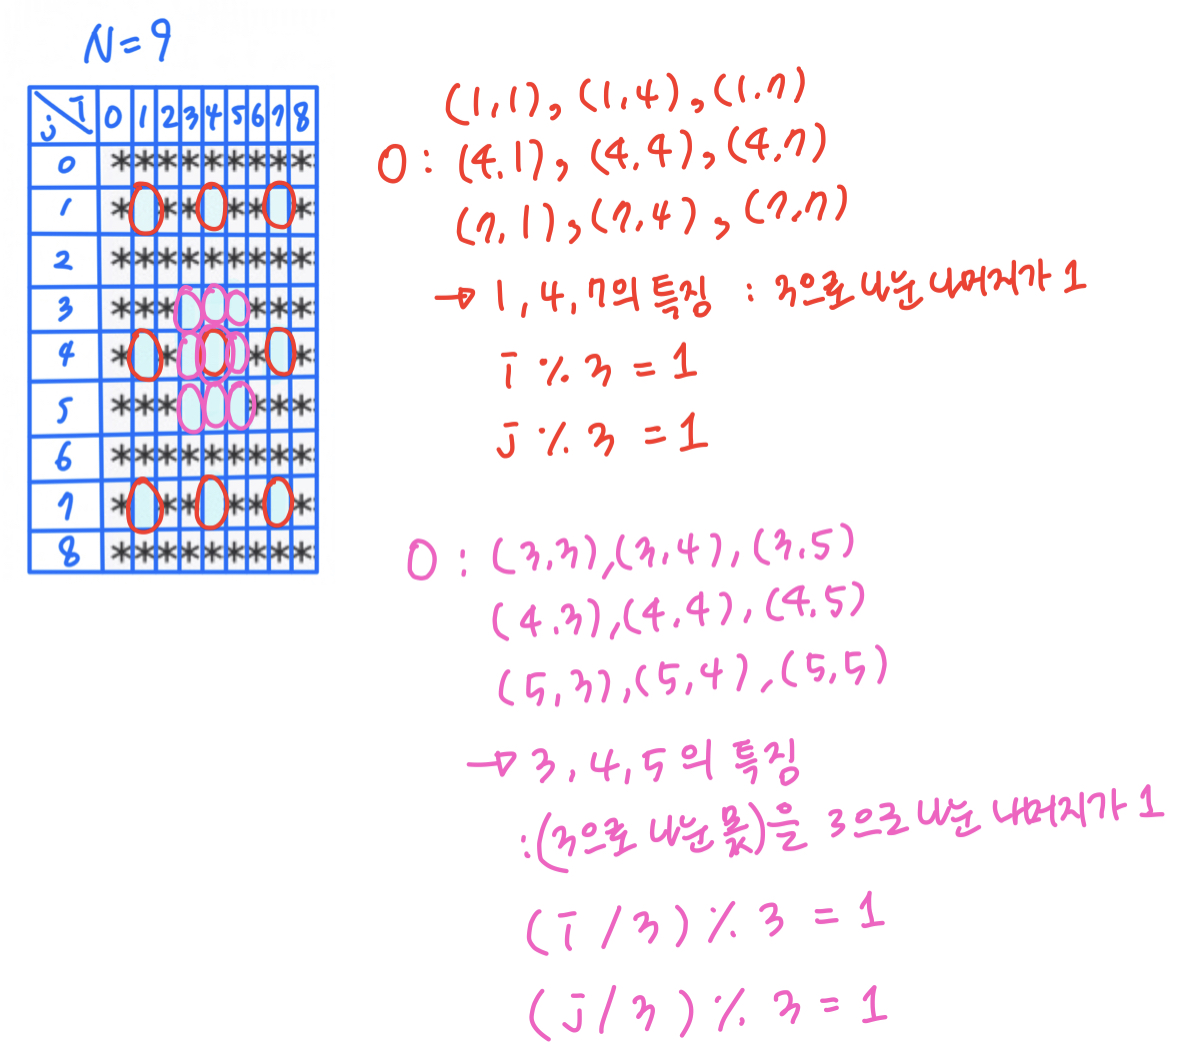 N=9
j i 0 1 2 3 4 5 6 7 8
0 *********
1 * ** ** *
2 *********
3 *** ***
4 * * * *
5 *** ***
6 *********
7 * ** ** *
8 *********
(1,1), (1,4), (1.7)
O : (4.1), (4.4), (4.7)
(7,1), (7,4), (7,7)
→ 1, 4, 7의 특징 : 3으로 나눈 나머지가 1
i % 3 = 1
j % 3 = 1
O : (3,3), (3,4), (3.5)
(4.3), (4,4), (4.5)
(5,3), (5,4), (5,5)
→ 3, 4, 5 의 특징
: (3으로 나눈 몫)을 3으로 나눈 나머지가 1
(i / 3) % 3 = 1
(j / 3) % 3 = 1